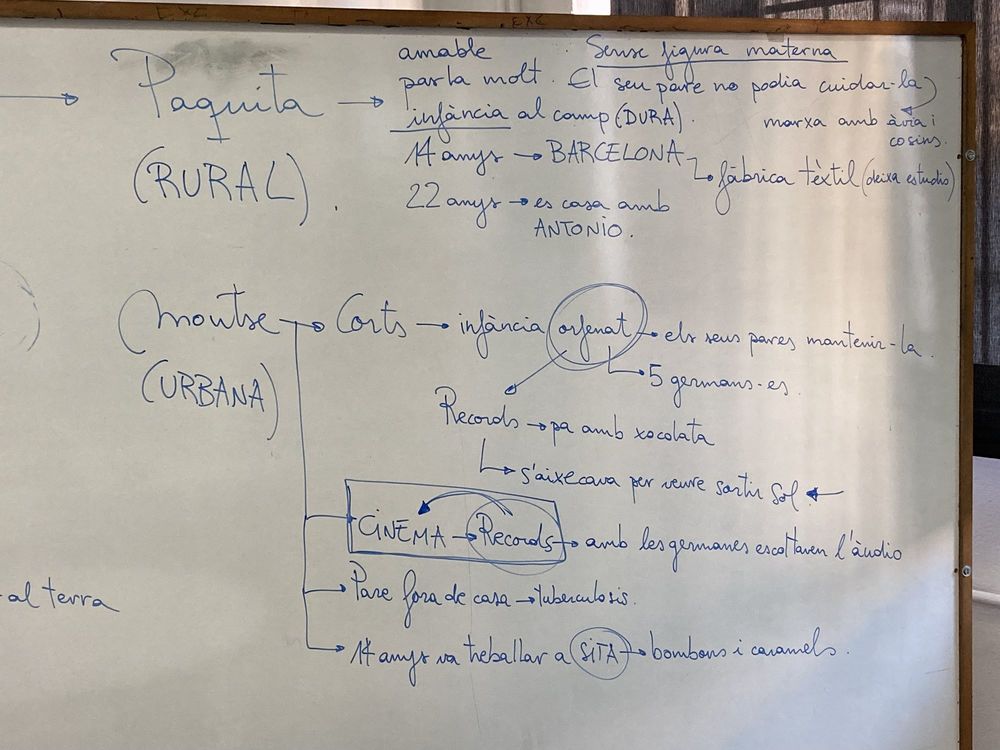 EXC
Paquita →
(RURAL).
amable
parla molt.
infància al camp (DURA).
14 anys → BARCELONA
↳ fàbrica tèxtil (deixa estudio)
22 anys → es casa amb
ANTONIO.
Sense figura materna
El seu pare no podia cuidar-la
marxa amb àvia i
cosins.
Montse → Corts → infància orfenat → els seus pares mantenir-la.
(URBANA)
↳ 5 germans-es.
Records → pa amb xocolata
↳ s'aixecava per veure sortir Sol ←
CINEMA → Records → amb les germanes escoltaven l'àudio
al terra
→ Pare fora de casa → tuberculosis.
→ 14 anys va treballar a SITA → bombons i caramels.